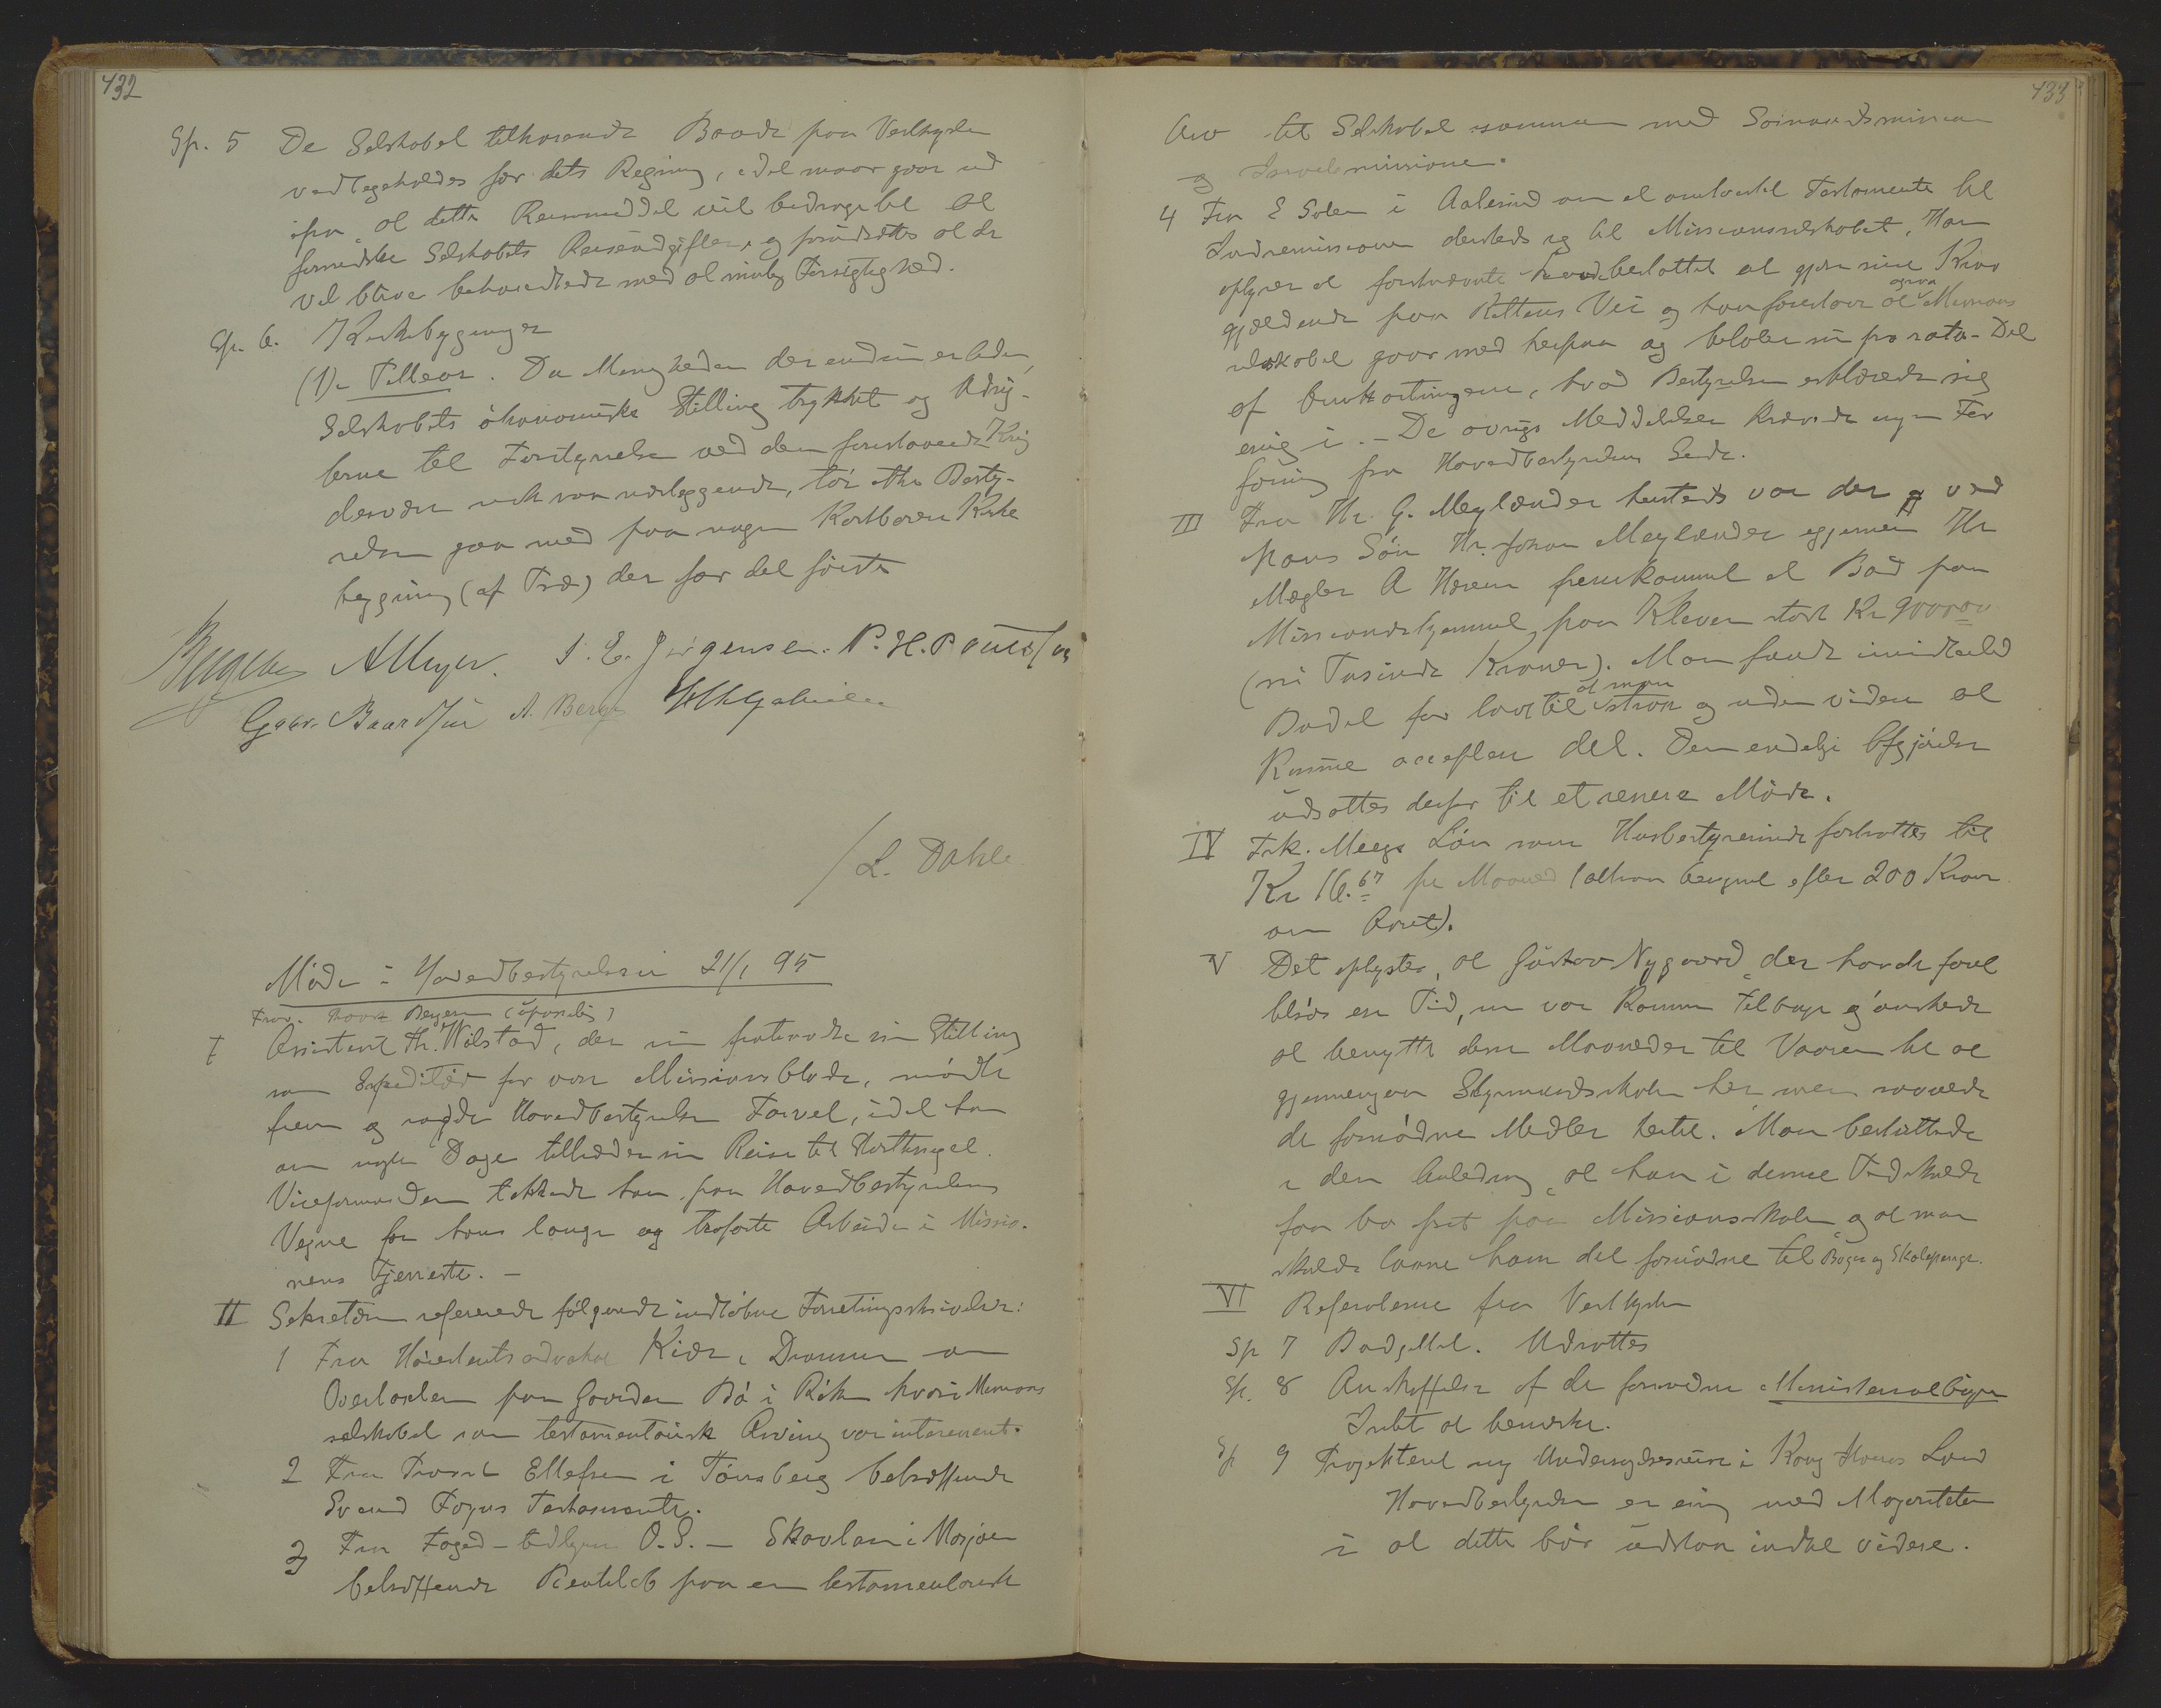 432
Sp. 5 De Selskabet tilhørende Baade paa Vestkysten
vedligeholdes for dets Regning, idet man gaar ud
ifra, at dette Reisemiddel vil bidrage til at
formindske Selskabets Reiseudgifter, og forudsættes at de
vil blive behandlede med al mulig Forsigtighed.
Sp. 6. Kirkebygninger
(1) Tillear. Da Menigheden der endnu er liden,
Selskabets økonomiske Stilling trykket og Udsig-
terne til Forstyrrelse ved den forestaaende Krig
desværre nok saa nærliggende, tør ikke Besty-
relsen gaa med paa nogen kostbarere Kirke
bygning (af Træ) der for det første
AMeyer. S. E. Jørgensen. P. H. Poulsson
Gabr. Baardsen A. Berge
/L. Dahle
Møde i Hovedbestyrelsen 21/1 95
I Assistent Th. Wilstad, der nu fratraadte sin Stilling
som Expeditør for vore Missionsblade, mødte
frem og sagde Hovedbestyrelsen Farvel, idet han
om nogle Dage tiltræder sin Reise til Storthinget.
Viceformanden takkede ham paa Hovedbestyrelsens
Vegne for hans lange og trofaste Arbeide i Missio-
nens Tjeneste. –
II Sekretæren refererede følgende indløbne Forretningsskrivelser:
1 Fra Høiesteretsadvokat Kiær i Drammen om
Overtaxten paa Gaarden Bø i Røken hvori Missions
selskabet som testamentarisk Arving var interesseret.
2 Fra Provst Ellefsen i Tønsberg betræffende
Svend Foyns Testamente.
3 Fra Foged O. S. – Skavlan i Mosjøen
betræffende Rentetab paa en testamentarisk
433
Arv til Selskabet sammen med Sømandsmissionen
og Israelsmissionen.
4 Fra E Solem i Aalesund om et omtvistet Testamente til
Indremissionen dersteds og til Missionsselskabet. Han
oplyser at førstnævnte havde besluttet at gjøre sine Krav
gjældende paa Rettens Vei og han foreslaar at ogsaa Missions
selskabet gaar med herpaa og betaler sin pro rata-Del
af Omkostningerne, hvad Bestyrelsen erklærede sig
enig i. – De øvrige Meddelelser krævede ingen For
føining fra Hovedbestyrelsens Side.
III Fra Hr. G. Meylænder hersteds var der ved
hans Søn Hr. Johan Meylænder gjennem Hr
Mægler A Hæren fremkommet et Bud paa
Missionshjemmet paa Kleven stort Kr 9000.00
(ni Tusinde Kroner). Man fandt imidlertid
Budet for lavt til at man strax og uden videre at
kunne acceptere det. Den endelige Afgjørelse
udsattes derfor til et senere Møde.
IV Frk. Meegs Løn som Husbestyrerinde fastsattes til
Kr 16.67 pr Maaned (altsaa beregnet efter 200 Kroner
om Aaret).
V Det oplystes, at Gustav Nygaard, der havde faret
tilsøs en Tid, nu var kommen tilbage og ønskede
at benytte disse Maaneder til Vaaren til at
gjennemgaa Styrmandsskolen her men savnede
de fornødne Midler hertil. Man besluttede
i den Anledning at han i denne Tid skulde
faa bo frit paa Missionsskolen og at man
skulde laane ham det fornødne til Bøger og Skolepenge.
VI Referaterne fra Vestkysten
Sp 7 Budgettet. Udsattes
Sp. 8 Anskaffelse af de fornødne Ministerialbøger
Intet at bemærke.
Sp 9 Projekteret ny Undersøgelsesreise i Kong Hovas Land
Hovedbestyrelsen er enig med Majoriteten
i at dette bør udstaa indtil videre.